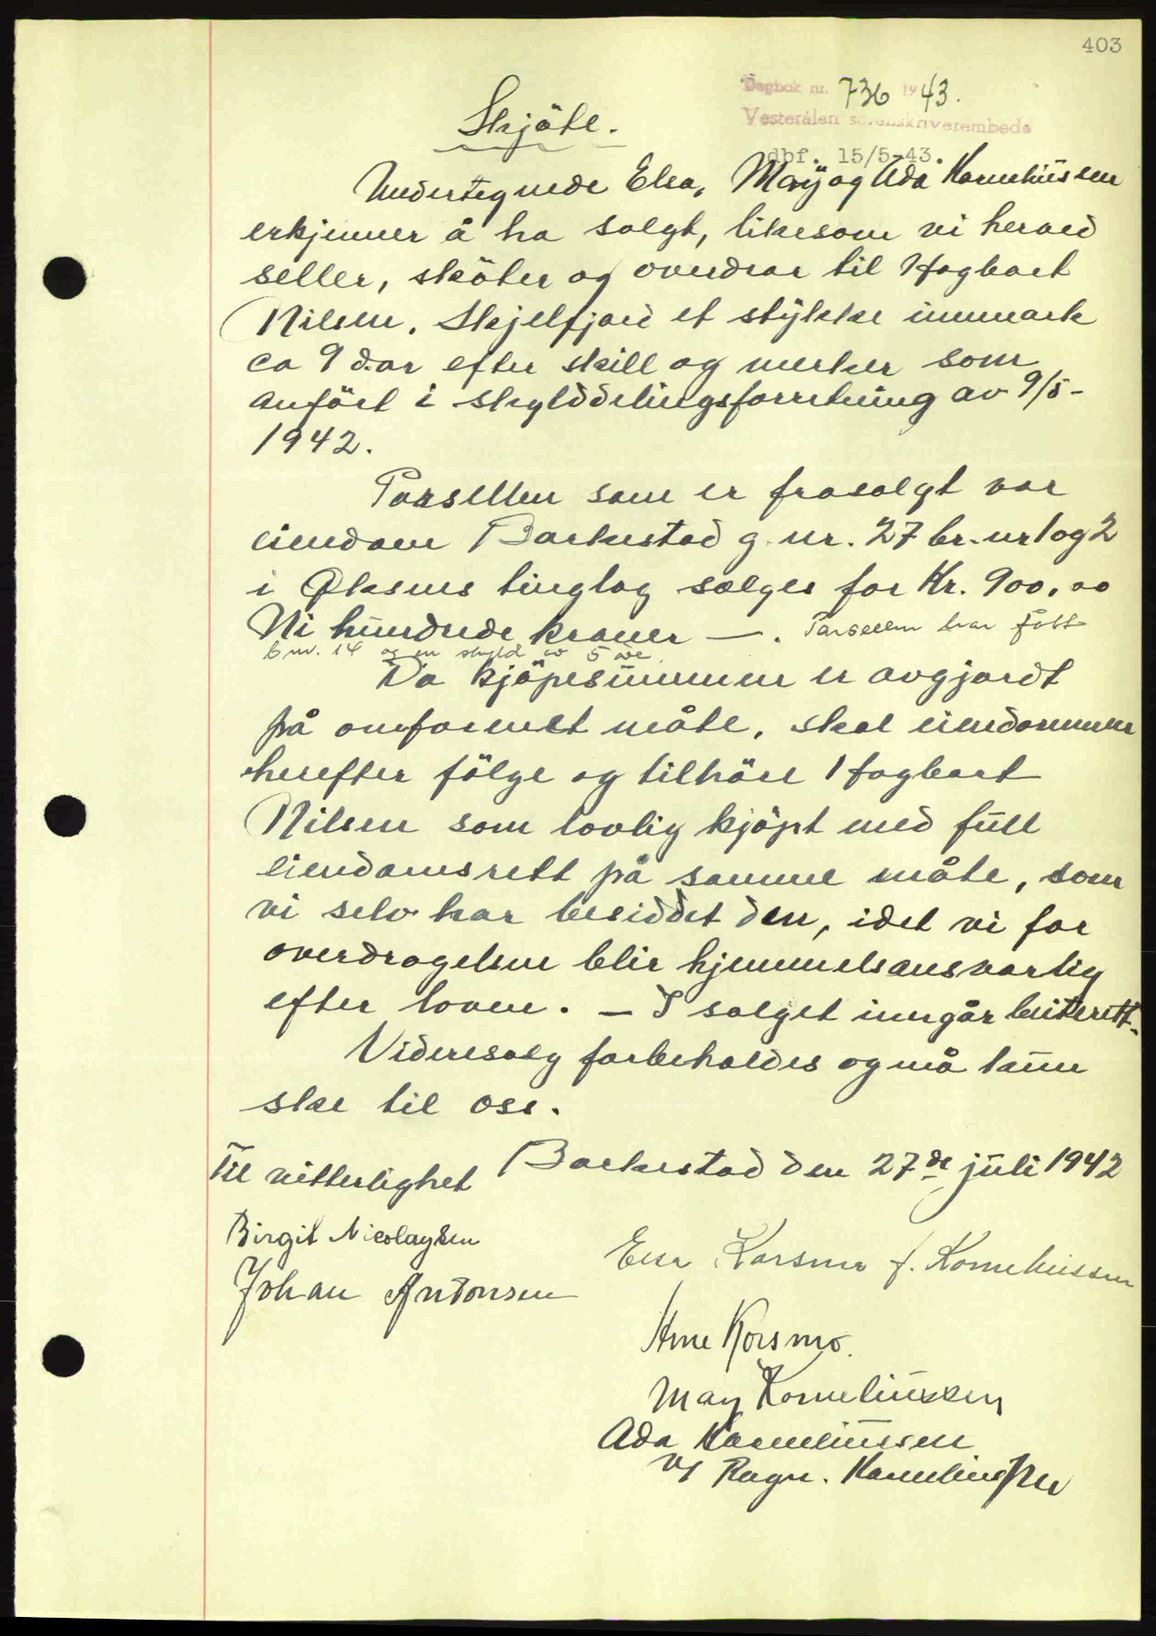 403
Dagbok nr. 736 1943.
Vesterålen sorenskriverembede
dbf. 15/5-43.
Skjöte.
Undertegnede Elsa, May og Ada Korneliussen
erkjenner å ha solgt, likesom vi herved
seller, sköter og overdrar til Hagbart
Nilsen, Skjelfjord et stykke innmark
ca 9 dar efter skill og merker som
anfört i skylddelingsforretning av 9/5-
1942.
Parsellen som er frasolgt vor
eiendom Barkestad g.nr. 27 br.nr 1 og 2
i Øksnes tinglag sælges for Kr. 900,00
Ni hundrede kroner —. Parsellen har fått
b.nr. 14 og en skyld av 5 øre.
Da kjöpesummen er avgjordt
på omforenet måte, skal eiendommen
herefter fölge og tilhöre Hagbart
Nilsen som lovlig kjöpt med full
eiendomsrett på samme måte, som
vi selv har besiddet den, idet vi for
overdragelsen blir hjemmelsansvarlig
efter loven. – I salget inngår beiterett.
Videresalg forbeholdes og må kun
ske til oss.
Barkestad den 27de juli 1942
Til vitterlighet
Birgit Nicolaysen
Johan Antonsen
Elsa Korsmo f. Korneliussen
Arne Korsmo.
May Korneliussen
Ada Korneliussen
v/ Ragn. Korneliussen